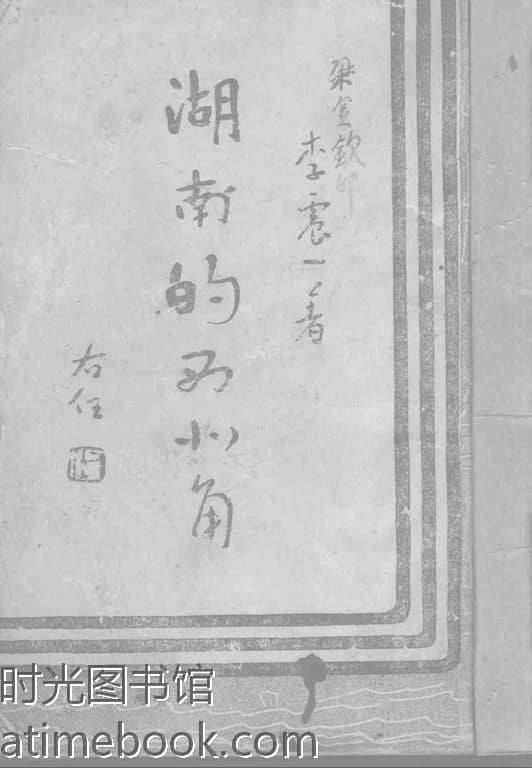 梁金欽印
李震一著
湖南的西北角
右任
时光图书馆
atimebook.com